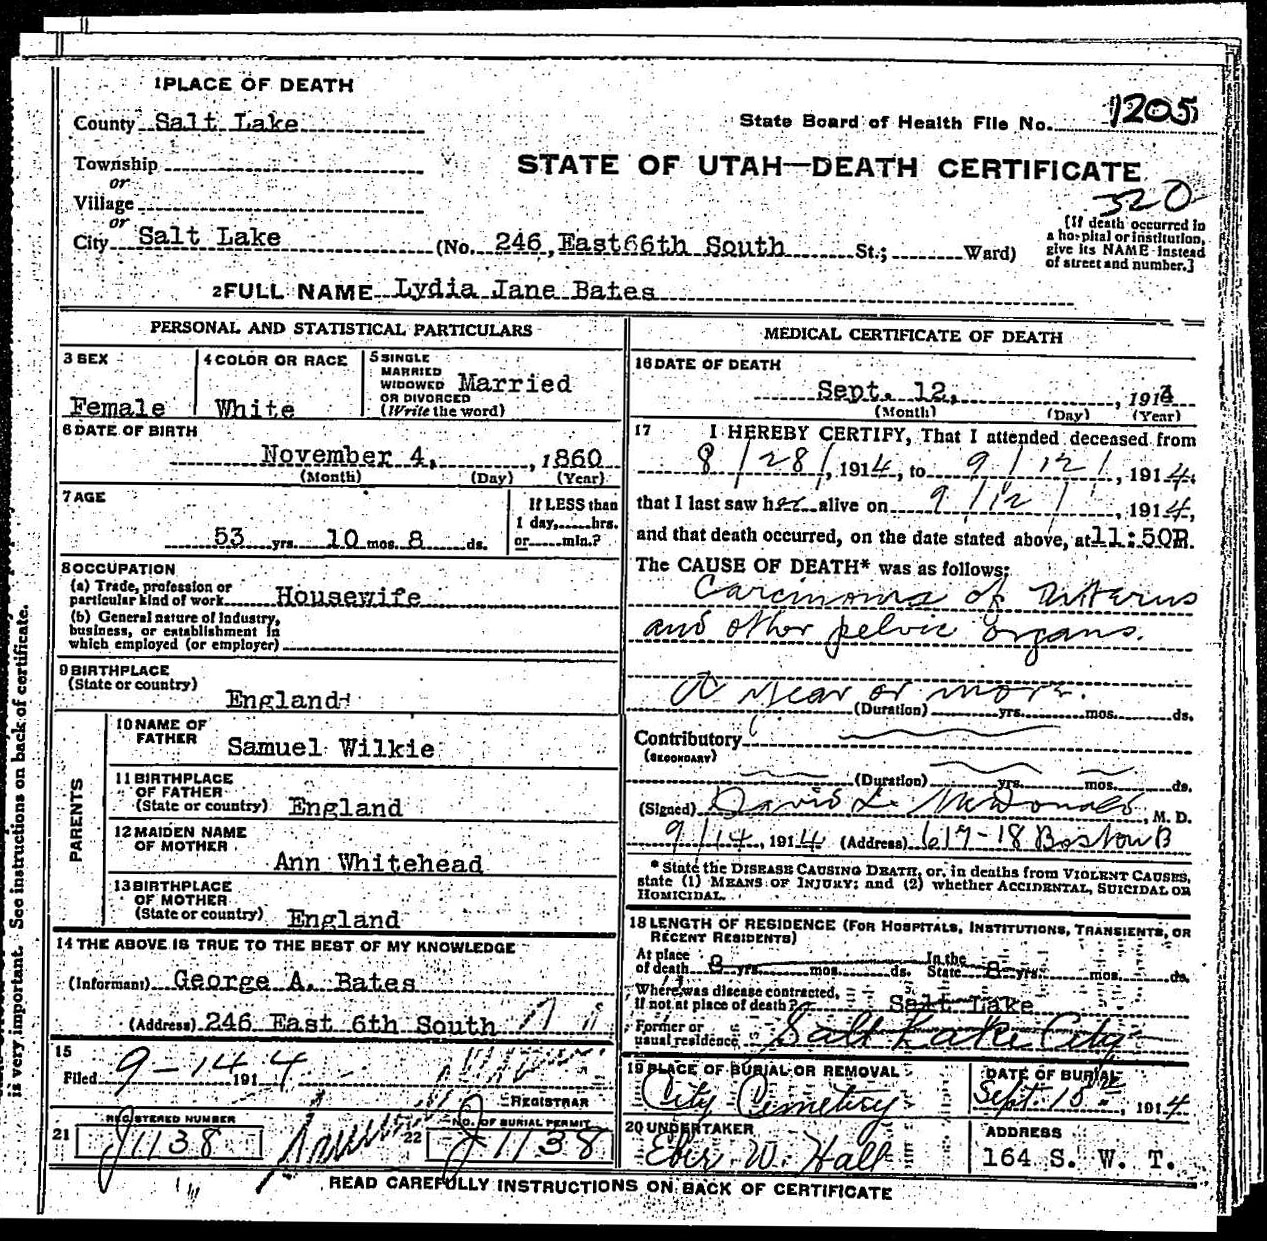 1 PLACE OF DEATH
County Salt Lake
State Board of Health File No. 1205
Township
or
Village
or
City Salt Lake
STATE OF UTAH—DEATH CERTIFICATE
320
(No. 246, East66th South St.; Ward)
[If death occurred in
a hospital or institution,
give its NAME instead
of street and number.]
2 FULL NAME Lydia Jane Bates
PERSONAL AND STATISTICAL PARTICULARS
3 SEX
Female
4 COLOR OR RACE
White
5 SINGLE
MARRIED
WIDOWED
OR DIVORCED
(Write the word)
Married
6 DATE OF BIRTH
November 4, , 1860
(Month) (Day) (Year)
7 AGE
53 yrs. 10 mos. 8 ds.
If LESS than
1 day, hrs.
or min.?
8 OCCUPATION
(a) Trade, profession or
particular kind of work Housewife
(b) General nature of Industry,
business, or establishment in
which employed (or employer)
9 BIRTHPLACE
(State or country)
England
PARENTS
10 NAME OF
FATHER
Samuel Wilkie
11 BIRTHPLACE
OF FATHER
(State or country) England
12 MAIDEN NAME
OF MOTHER
Ann Whitehead
13 BIRTHPLACE
OF MOTHER
(State or country) England
14 THE ABOVE IS TRUE TO THE BEST OF MY KNOWLEDGE
(Informant) George A. Bates
(Address) 246 East 6th South
15
Filed 9-14 1914
REGISTRAR
REGISTERED NUMBER
21 J1138
NO. OF BURIAL PERMIT
22 J1138
MEDICAL CERTIFICATE OF DEATH
16 DATE OF DEATH
Sept. 12, , 1914
(Month) (Day) (Year)
17 I HEREBY CERTIFY, That I attended deceased from
8/28/, 1914, to 9/12/, 1914,
that I last saw her alive on 9/12/, 1914,
and that death occurred, on the date stated above, at 11:50P.
The CAUSE OF DEATH* was as follows:
Carcinoma of Uterus
and other pelvic organs.
A year or more.
(Duration) yrs. mos. ds.
Contributory
(SECONDARY)
(Duration) yrs. mos. ds.
(Signed) David L. McDonald, M. D.
9/14, 1914 (Address) 617-18 Boston B
* State the DISEASE CAUSING DEATH, or, in deaths from VIOLENT CAUSES,
state (1) MEANS OF INJURY; and (2) whether ACCIDENTAL, SUICIDAL OR
HOMICIDAL.
18 LENGTH OF RESIDENCE (FOR HOSPITALS, INSTITUTIONS, TRANSIENTS, OR
RECENT RESIDENTS)
At place
of death 8 yrs. mos. ds.
In the
State 8 yrs. mos. ds.
Where was disease contracted,
if not at place of death? Salt Lake
Former or
usual residence Salt Lake City
19 PLACE OF BURIAL OR REMOVAL
City Cemetery
DATE OF BURIAL
Sept. 15, 1914
20 UNDERTAKER
Eber W. Hall
ADDRESS
164 S. W. T.
READ CAREFULLY INSTRUCTIONS ON BACK OF CERTIFICATE
is very important. See instructions on back of certificate.